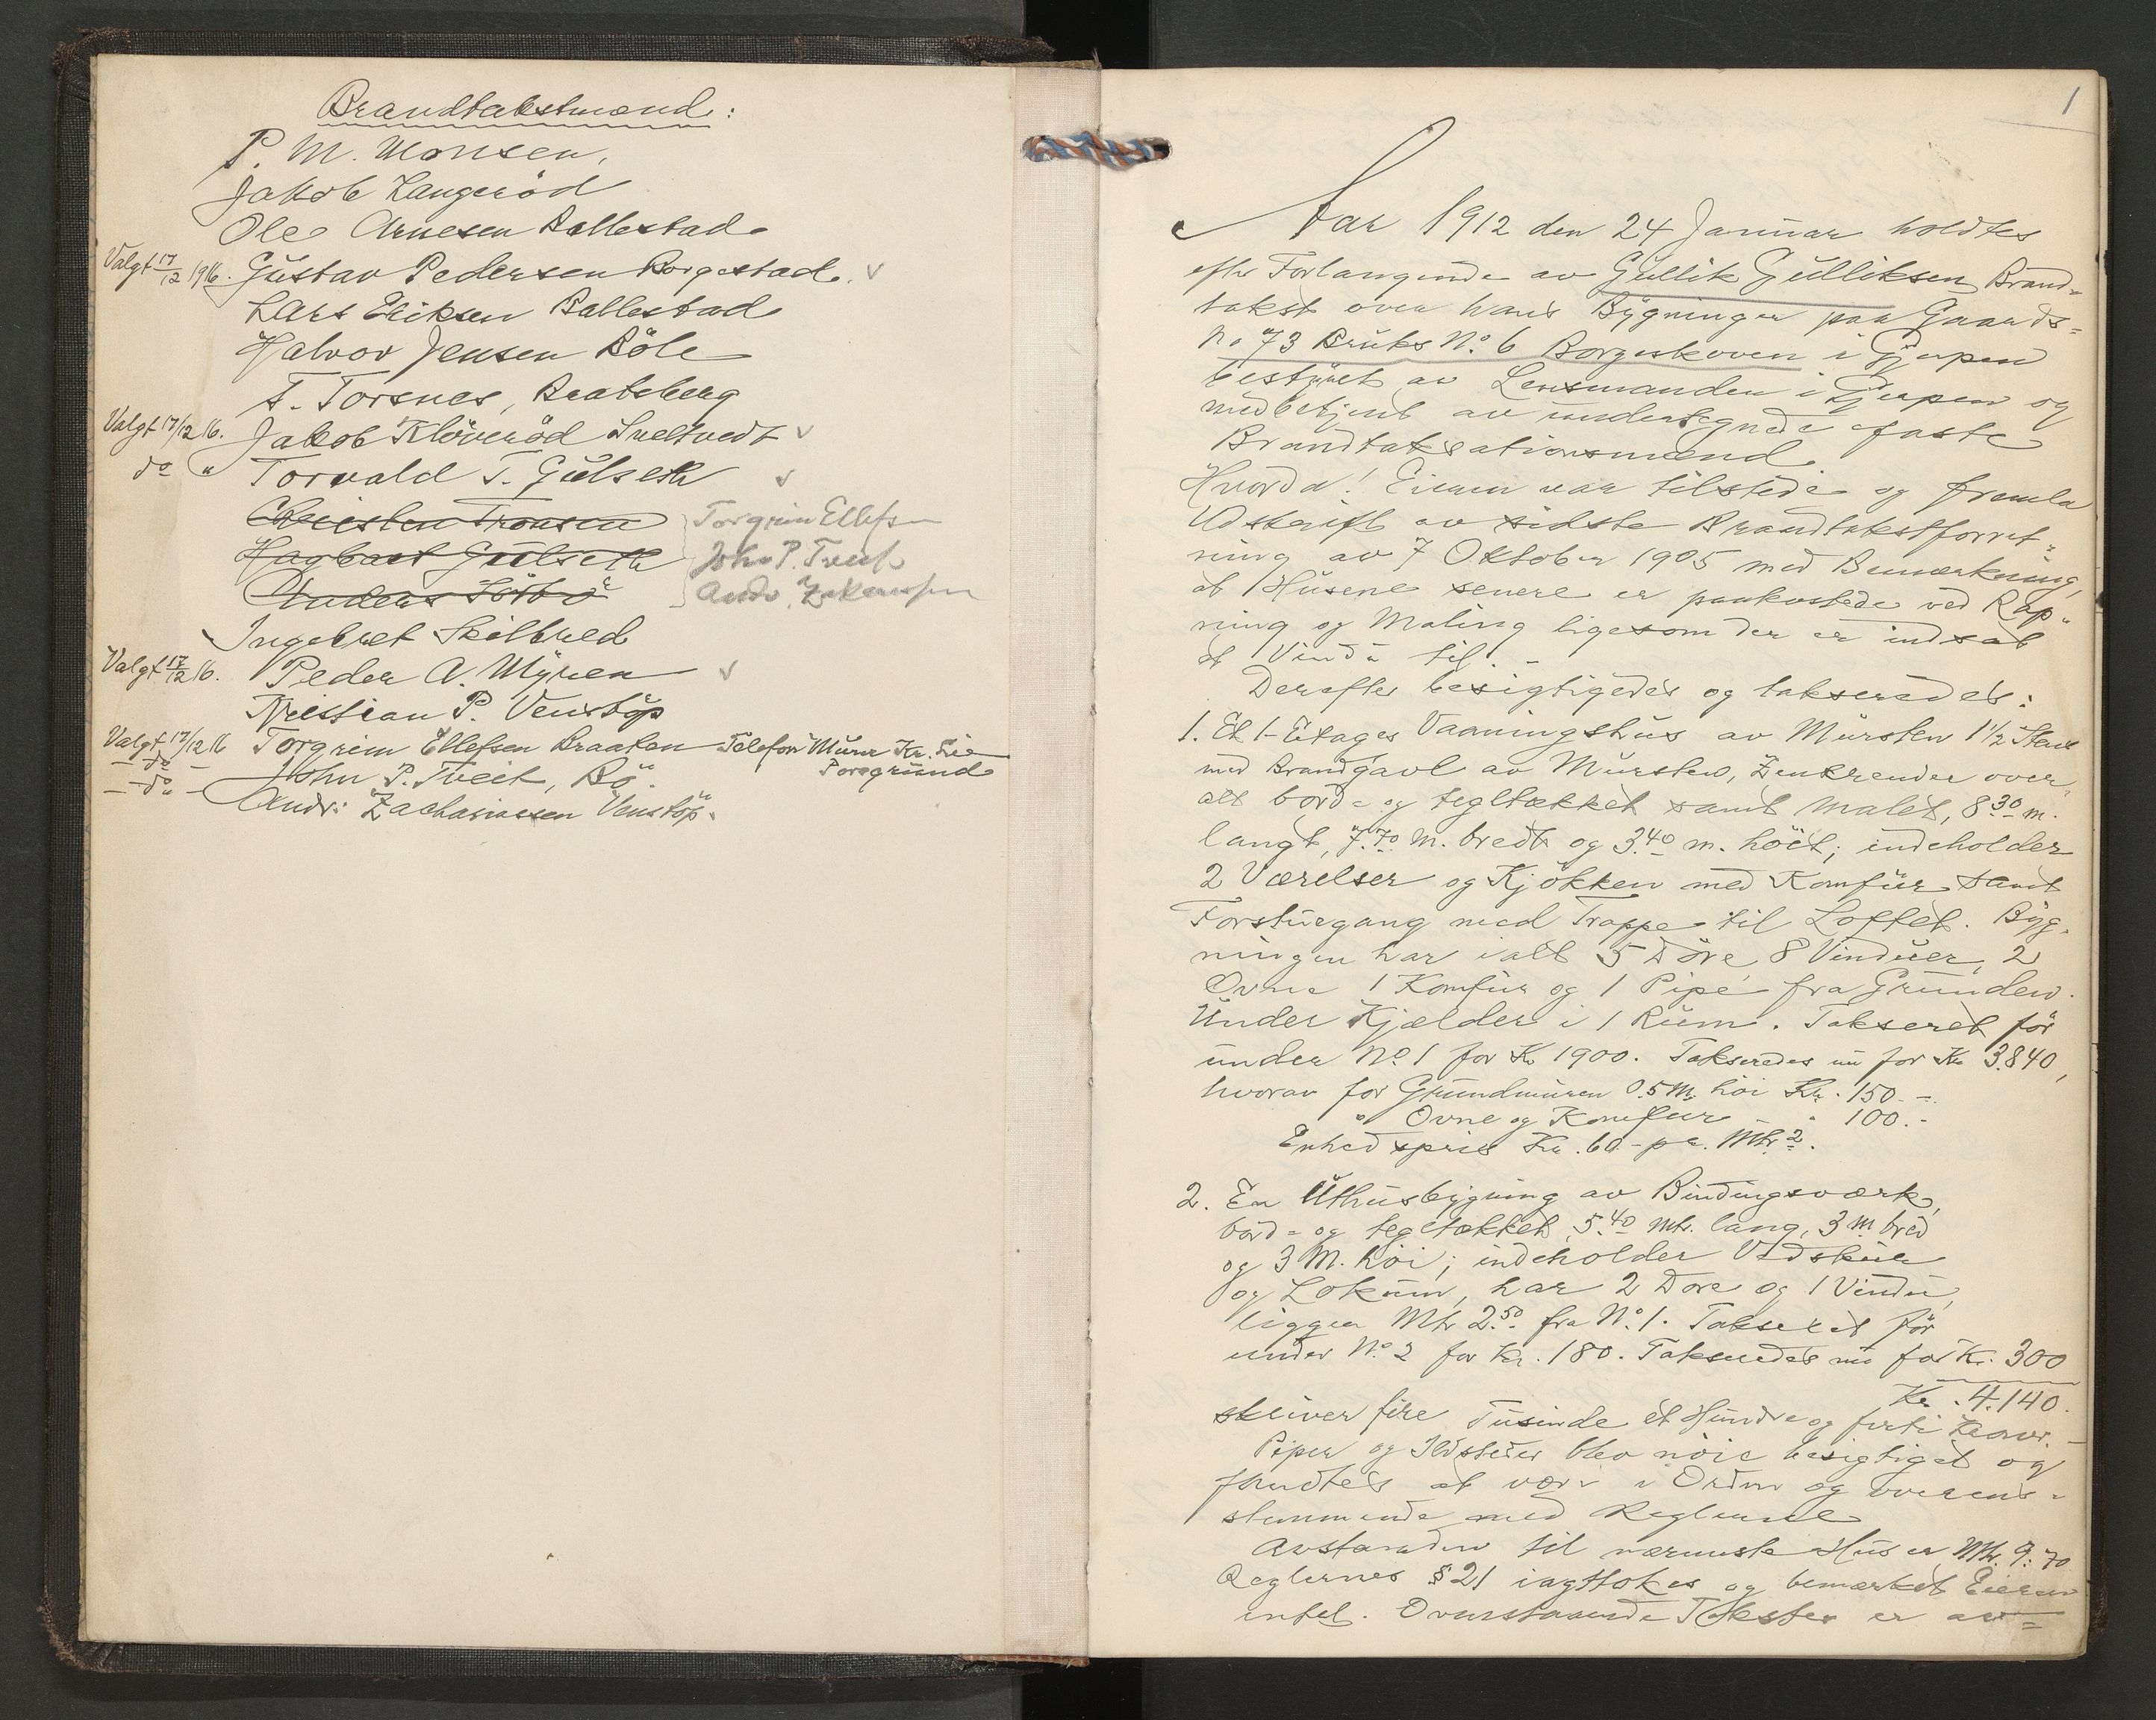 Brandtakstmænd:
P. M. Monsen,
Jakob Langeröd
Ole Arnesen Ballestad
Valgt 17/12 1916. Gustav Pedersen Borgestad. v
Lars Eriksen Ballestad
Halvor Jensen Böle
T. Torsnes, Bratsberg
Valgt 17/12 16. Jakob Klöveröd Sneltvedt v
do " Torvald T. Gulseth v
Christen Tronsen Torgrim Ellefsen
Hagbart Gulseth John P. Tveit
Anders Andr. Zakariassen
Ingebret Skilbred
Valgt 17/12 16. Peder A. Myren v
Kristian P. Venstöp
Valgt 17/12 16 Torgrim Ellefsen Braaten Telefon Murer Kr. Lie
Porsgrund
— do — John P. Tveit, Bö.
— do — Andr: Zachariassen Venstöp.
1
Aar 1912 den 24 Januar holdtes
efter Forlangende av Gullik Gulliksen Brand-
takst over hans Bygninger paa Gaards-
No 73 Bruks No. 6 Borgeskoven i Gjerpen
bestyret av Lensmanden i Gjerpen og
medbetjent av undertegnede faste
Brandtaksationsmænd.
Hvorda! Eieren var tilstede og fremla
Utskrift av sidste Brandtakstforret-
ning av 7 Oktober 1905 med Bemærkning,
at Husene senere er paakostede ved Rap-
ning og Maling ligesom der er indsat
et Vindu til. -
Derefter besigtigedes og takseredes:
1. Et 1-Etages Vaaningshus av Mursten 1 1/2 Sten
med Brandgavl av Mursten, Zenkrender over-
alt bord- og tegltækket samt malet, 8.30 m.
langt, 7.70 m. bredt og 3.40 m. höit; indeholder
2 Værelser og Kjökken med Komfur samt
Forstuegang med Trappe til Loftet. Byg-
ningen har ialt 5 Döre, 8 Vinduer, 2
Ovne 1 Komfur og 1 Pipe fra Grunden.
Under Kjælder i 1 Rum. Takseret för
under No. 1 for Kr 1900. Takseredes nu for Kr 3.840,
hvorav for Grundmuren 0.5 M. höi Kr. 150.-
" Ovne og Komfur - " 100.-
Enhedspris Kr. 60.- pr. Mtr. 2.
2. En Uthusbygning av Bindingsværk,
bord- og tegltækket, 5.40 Mtr. lang, 3 M bred
og 3 M. höi; indeholder Vedskur
og Lokum, har 2 Döre og 1 Vindu,
ligger Mtr 2.50 fra No. 1. Takseret för
under No. 2 for Kr. 180. Takseredes nu for Kr. 300
Kr. 4.140.
skriver fire Tusinde et Hundre og firti Kroner. -
Piper og Ildsteder blev nöie besigtiget og
fandtes at være i Orden og overens-
stemmende med Reglerne
Avstanden til nærmeste Hus er Mtr. 9.70
Reglernes § 21 iagttokes og bemærket Eieren
intet. Ovenstaaende Takster er av-